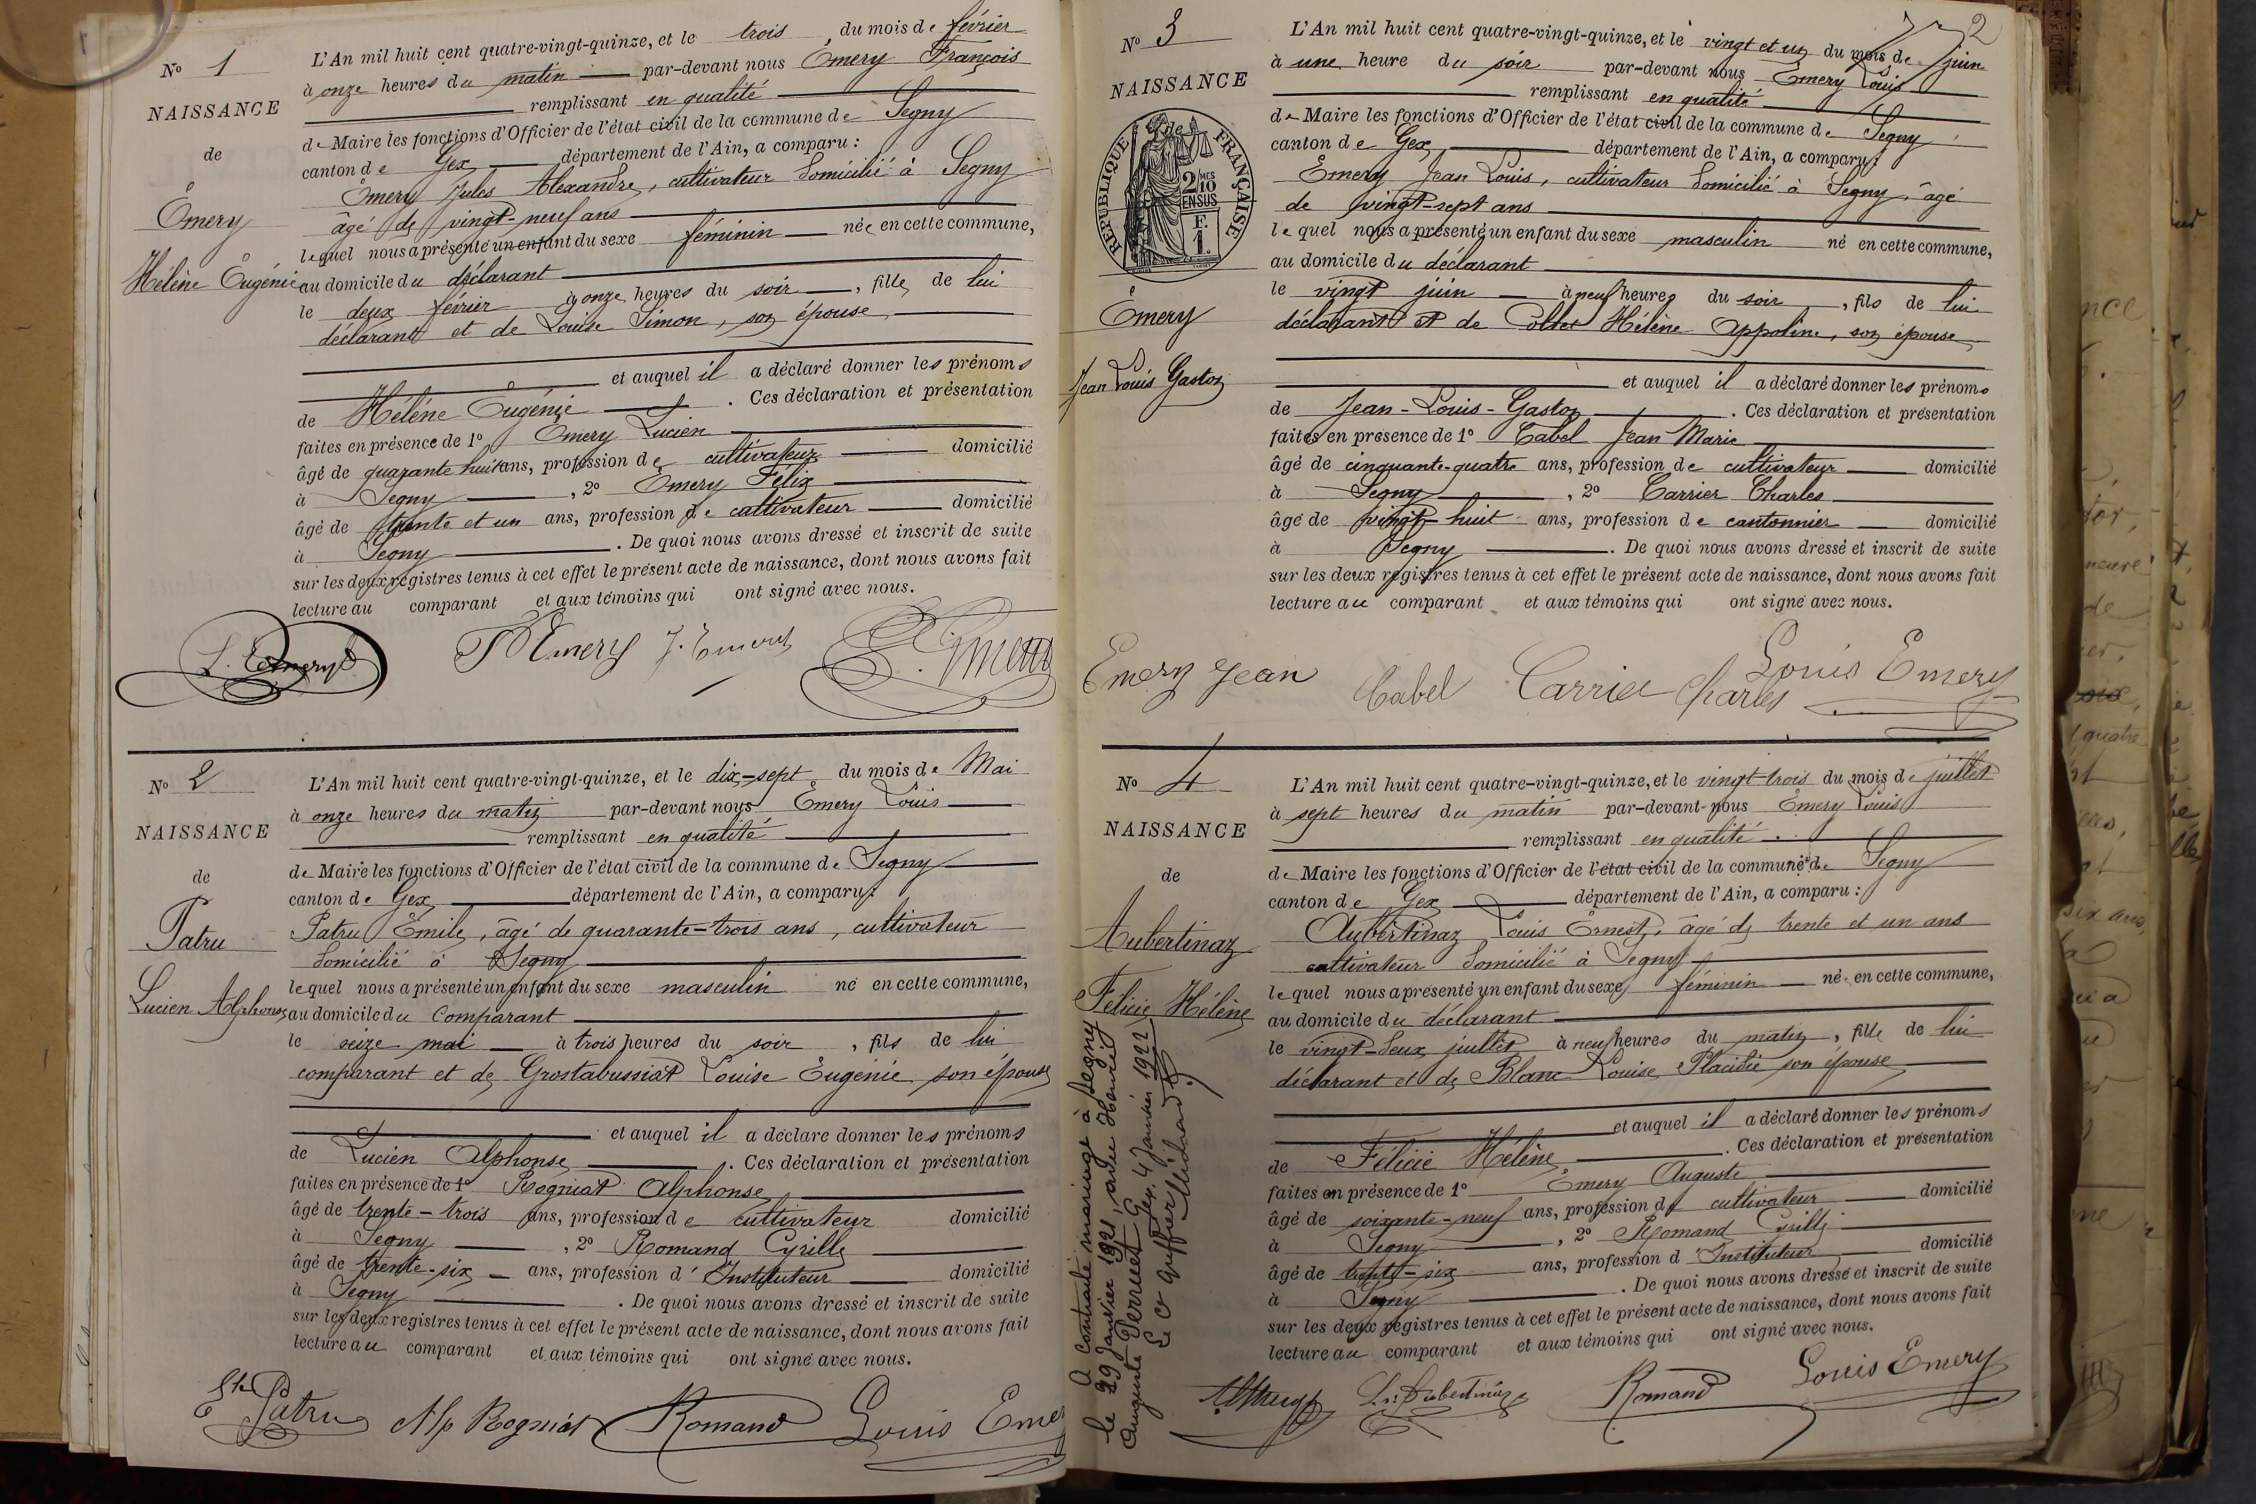 N° 1
NAISSANCE
de
Émery
Hélène Eugénie
L'An mil huit cent quatre-vingt-quinze, et le trois, du mois de février
à onze heures du matin par-devant nous Émery François
remplissant en qualité
de Maire les fonctions d'Officier de l'état civil de la commune de Segny
canton de Gex département de l'Ain, a comparu :
Émery Jules Alexandre, cultivateur domicilié à Segny
âgé de vingt-neuf ans
lequel nous a présenté un enfant du sexe féminin née en cette commune,
au domicile du déclarant
le deux février à onze heures du soir, fille de lui
déclarant et de Louise Simon, son épouse
et auquel il a déclaré donner les prénoms
de Hélène Eugénie. Ces déclaration et présentation
faites en présence de 1° Émery Lucien
âgé de quarante huit ans, profession de cultivateur domicilié
à Segny, 2° Émery Félix
âgé de trente et un ans, profession de cultivateur domicilié
à Segny. De quoi nous avons dressé et inscrit de suite
sur les deux registres tenus à cet effet le présent acte de naissance, dont nous avons fait
lecture au comparant et aux témoins qui ont signé avec nous.
L. Emery F Emery J. Emery
N° 2
NAISSANCE
de
Patru
Lucien Alphonse
L'An mil huit cent quatre-vingt-quinze, et le dix-sept du mois de Mai
à onze heures du matin par-devant nous Émery Louis
remplissant en qualité
de Maire les fonctions d'Officier de l'état civil de la commune de Segny
canton de Gex département de l'Ain, a comparu :
Patru Émile, âgé de quarante-trois ans, cultivateur
domicilié à Segny
lequel nous a présenté un enfant du sexe masculin né en cette commune,
au domicile du comparant
le seize mai à trois heures du soir, fils de lui
comparant et de Grostabussiat Louise Eugénie son épouse
et auquel il a déclaré donner les prénoms
de Lucien Alphonse. Ces déclaration et présentation
faites en présence de 1° Rogniat Alphonse
âgé de trente-trois ans, profession de cultivateur domicilié
à Segny, 2° Romand Cyrille
âgé de trente-six ans, profession d'Instituteur domicilié
à Segny. De quoi nous avons dressé et inscrit de suite
sur les deux registres tenus à cet effet le présent acte de naissance, dont nous avons fait
lecture au comparant et aux témoins qui ont signé avec nous.
Patru Alp Rogniat Romand Louis Emery
2
N° 3
NAISSANCE
de
RÉPUBLIQUE FRANÇAISE
2/10 EN SUS
F. 1.
Émery
Jean Louis Gaston
L'An mil huit cent quatre-vingt-quinze, et le vingt et un du mois de juin
à une heure du soir par-devant nous Émery Louis
remplissant en qualité
de Maire les fonctions d'Officier de l'état civil de la commune de Segny
canton de Gex, département de l'Ain, a comparu :
Émery Jean Louis, cultivateur domicilié à Segny, âgé
de vingt-sept ans
lequel nous a présenté un enfant du sexe masculin né en cette commune,
au domicile du déclarant
le vingt juin à neuf heures du soir, fils de lui
déclarant et de Collet Hélène Appoline, son épouse
et auquel il a déclaré donner les prénoms
de Jean-Louis-Gaston. Ces déclaration et présentation
faites en présence de 1° Cabel Jean Marie
âgé de cinquante-quatre ans, profession de cultivateur domicilié
à Segny, 2° Carrier Charles
âgé de vingt-huit ans, profession de cantonnier domicilié
à Segny. De quoi nous avons dressé et inscrit de suite
sur les deux registres tenus à cet effet le présent acte de naissance, dont nous avons fait
lecture au comparant et aux témoins qui ont signé avec nous.
Emery Jean Cabel Carrier Charles Louis Emery
N° 4
NAISSANCE
de
Aubertinaz
Félicie Hélène
A contracté mariage à Segny
le 29 Janvier 1921, avec
Auguste Perruet Gex, 4 Janvier 1922
Le Greffier
L'An mil huit cent quatre-vingt-quinze, et le vingt-trois du mois de juillet
à sept heures du matin par-devant nous Émery Louis
remplissant en qualité
de Maire les fonctions d'Officier de l'état civil de la commune de Segny
canton de Gex département de l'Ain, a comparu :
Aubertinaz Louis Ernest, âgé de trente et un ans
cultivateur domicilié à Segny
lequel nous a présenté un enfant du sexe féminin née en cette commune,
au domicile du déclarant
le vingt-deux juillet à neuf heures du matin, fille de lui
déclarant et de Blanc Louise Placidie son épouse
et auquel il a déclaré donner les prénoms
de Félicie Hélène. Ces déclaration et présentation
faites en présence de 1° Émery Auguste
âgé de soixante-neuf ans, profession de cultivateur domicilié
à Segny, 2° Romand Cyrille
âgé de trente-six ans, profession d'Instituteur domicilié
à Segny. De quoi nous avons dressé et inscrit de suite
sur les deux registres tenus à cet effet le présent acte de naissance, dont nous avons fait
lecture au comparant et aux témoins qui ont signé avec nous.
Ls Aubertinaz Romand Louis Emery